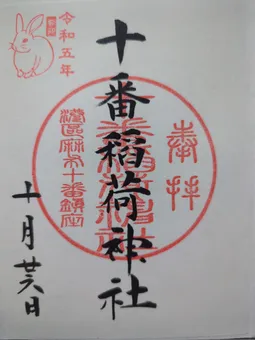 奉拝
十番稲荷神社
港區麻布十番鎮座
令和五年
十月廿六日